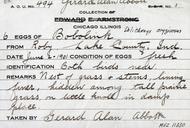 A.O.U. No. 494 Gerard Alan Abbott Collection No. 1
EDWARD E. ARMSTRONG
CHICAGO ILLINOIS
6 EGGS OF Bobolink
FROM Roby Lake County, Ind.
DATE June 2-1901 CONDITION OF EGGS fresh
IDENTITY Both birds seen
REMARKS Nest of grass & stems, lining
finer, hidden among tall prairie
grass, on little knoll in damp
place.
TAKEN BY Gerard Alan Abbott